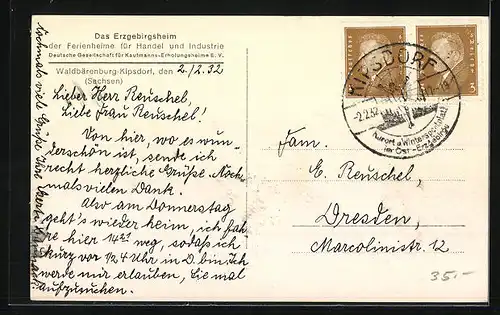 Das Erzgebirgsheim
der Ferienheime für Handel und Industrie
Deutsche Gesellschaft für Kaufmanns-Erholungsheime E. V.
Waldbärenburg-Kipsdorf, den 2./2.32
(Sachsen)
Lieber Herr Reuschel,
Liebe Frau Reuschel!
Von hier, wo es wun-
derschön ist, sende ich
recht herzliche Grüße. Noch-
mals vielen Dank.
Also am Donnerstag
geht's wieder heim, ich fah-
re hier 14 weg, sodaß ich
kurz vor 1/4 4 Uhr in D. bin. Ich
werde mir erlauben, Sie mal
aufzusuchen.
Nochmals viele Grüße, Ihre
KIPSDORF
-2.2.32
Kurort u Wintersportplatz
im Ost-Erzgebirge
3
Fam.
C. Reuschel,
Dresden,
Marcolinistr. 12
35.-